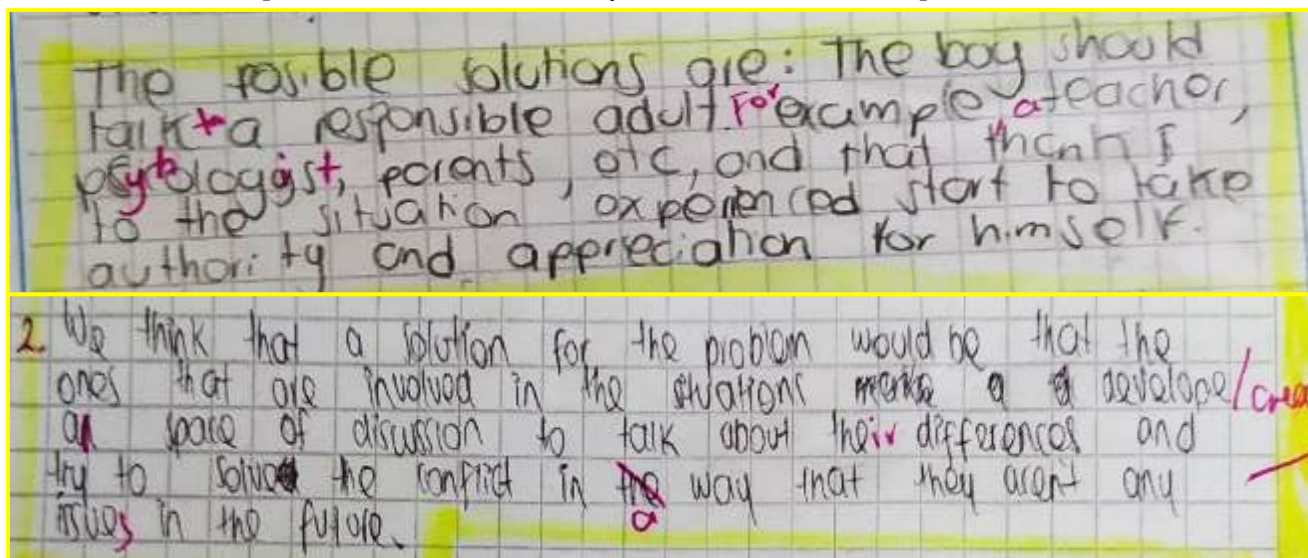 The posible solutions are: The boy should
talk to a responsible adult For example a teacher,
psychologgist, parents, etc, and that thanks
to the situation experienced start to take
authority and appreciation for himself.
2. We think that a solution for the problem would be that the
ones that are involved in the situations a develope/crea
a space of discussion to talk about their differences and
try to solve the conflict in a way that they aren't any
issues in the future.